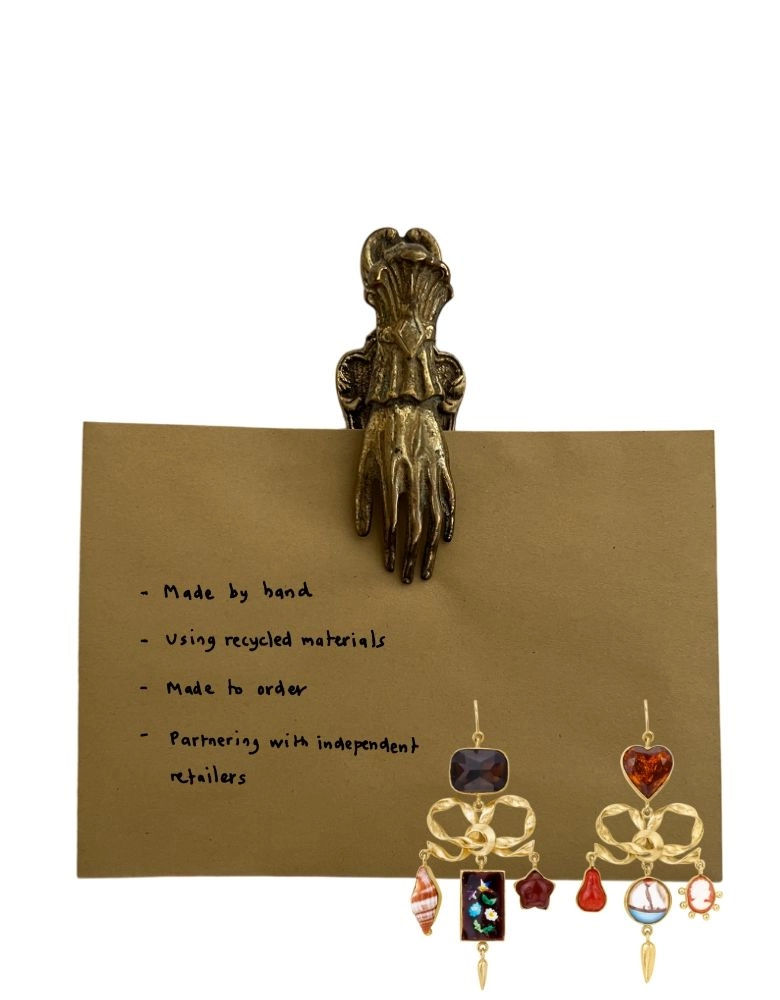 - Made by hand
- Using recycled materials
- Made to order
- Partnering with independent
retailers